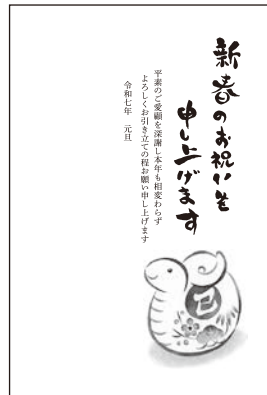 新春のお祝いを
申し上げます
平素のご愛顧を深謝し本年も相変わらず
よろしくお引き立ての程お願い申し上げます
令和七年　元旦
巳